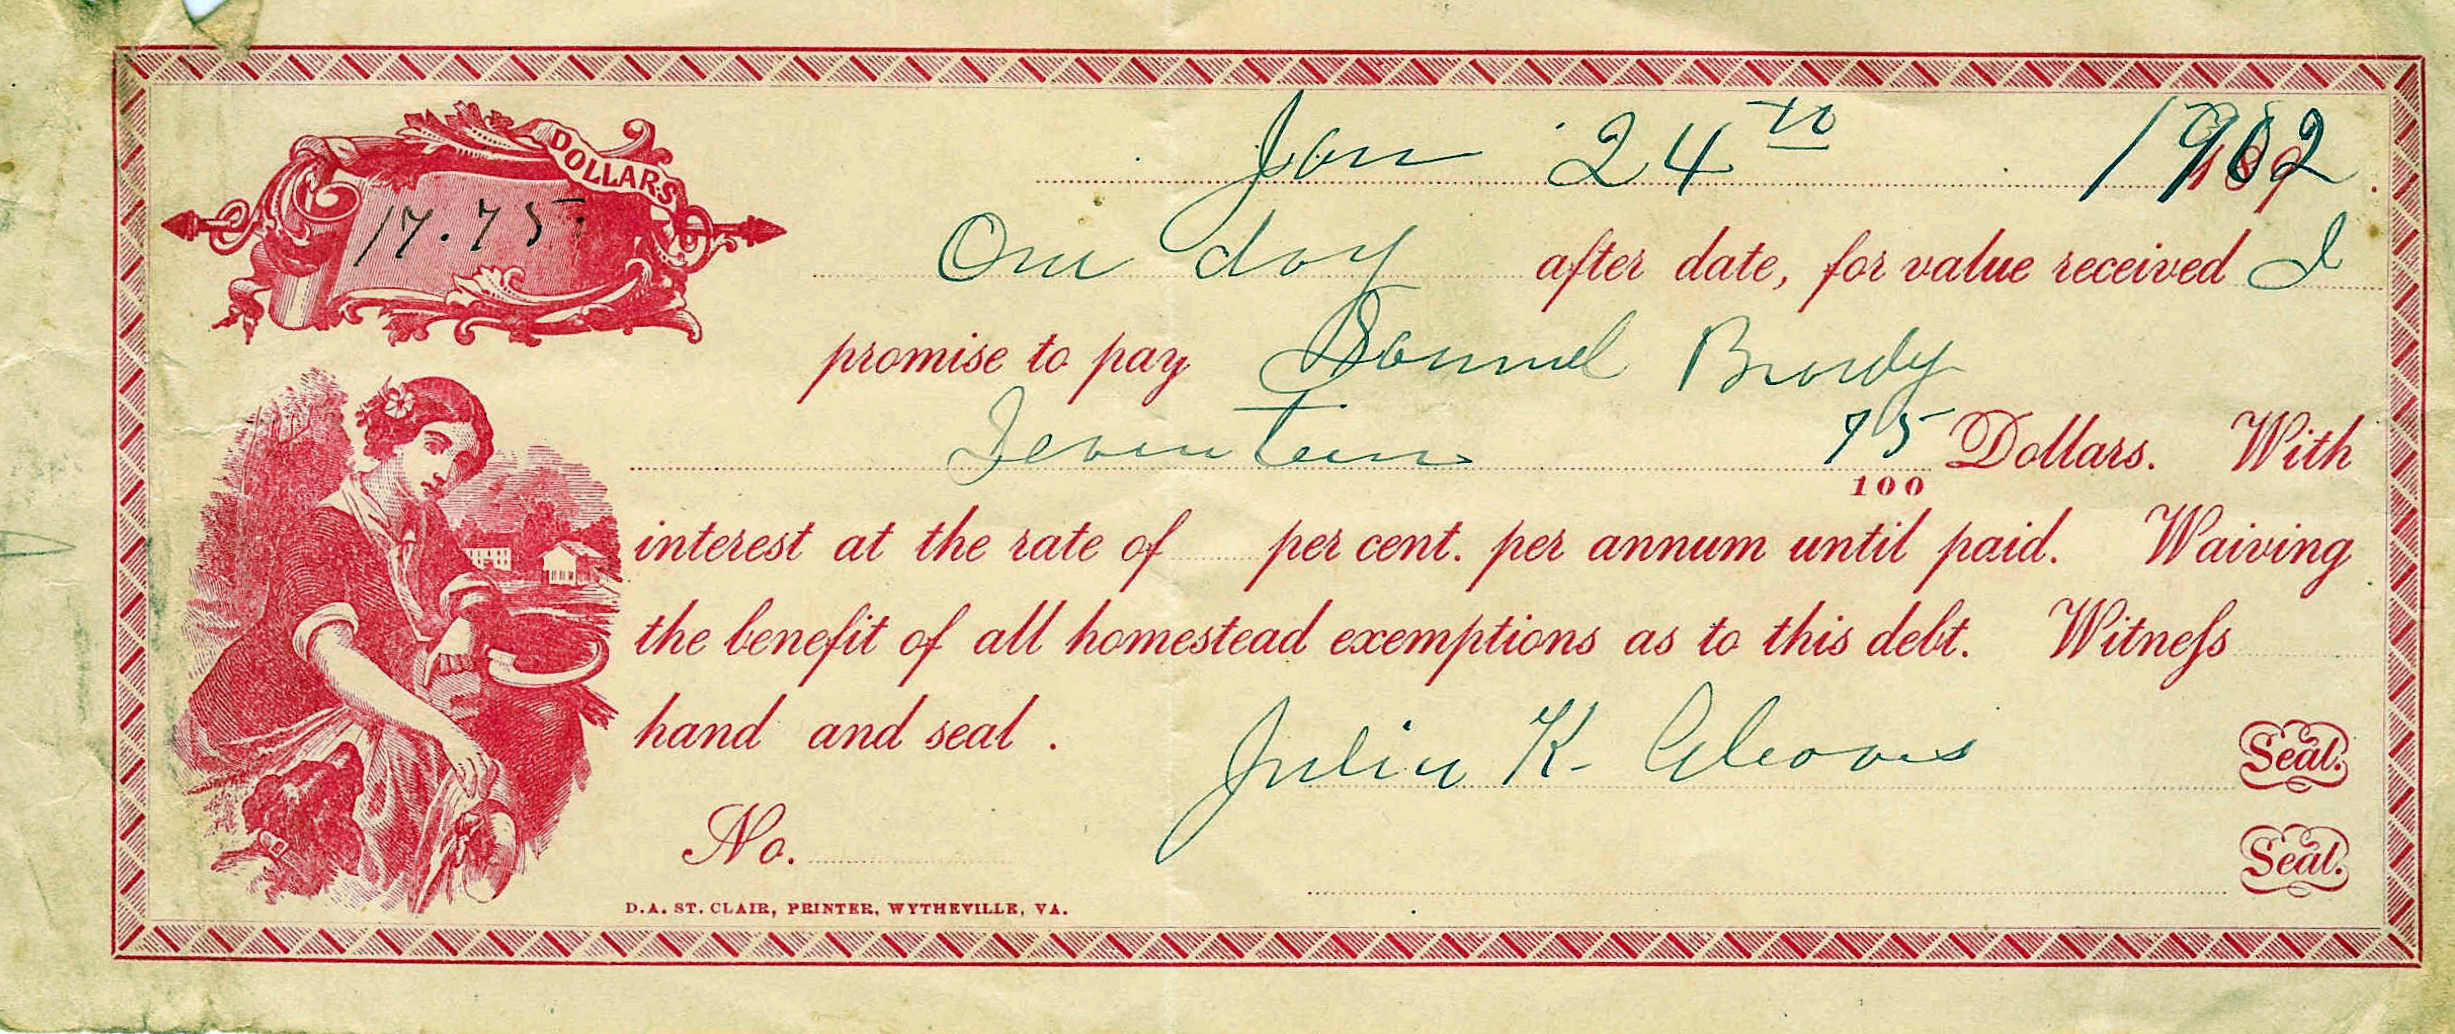 DOLLARS
17.75
Jan 24th 1902
One day after date, for value received I
promise to pay Samuel Brody
Seventeen 75/100 Dollars. With
interest at the rate of per cent. per annum until paid. Waiving
the benefit of all homestead exemptions as to this debt. Witness
hand and seal.
Julia K. Cleaves Seal.
No.
Seal.
D.A. ST. CLAIR, PRINTER, WYTHEVILLE, VA.